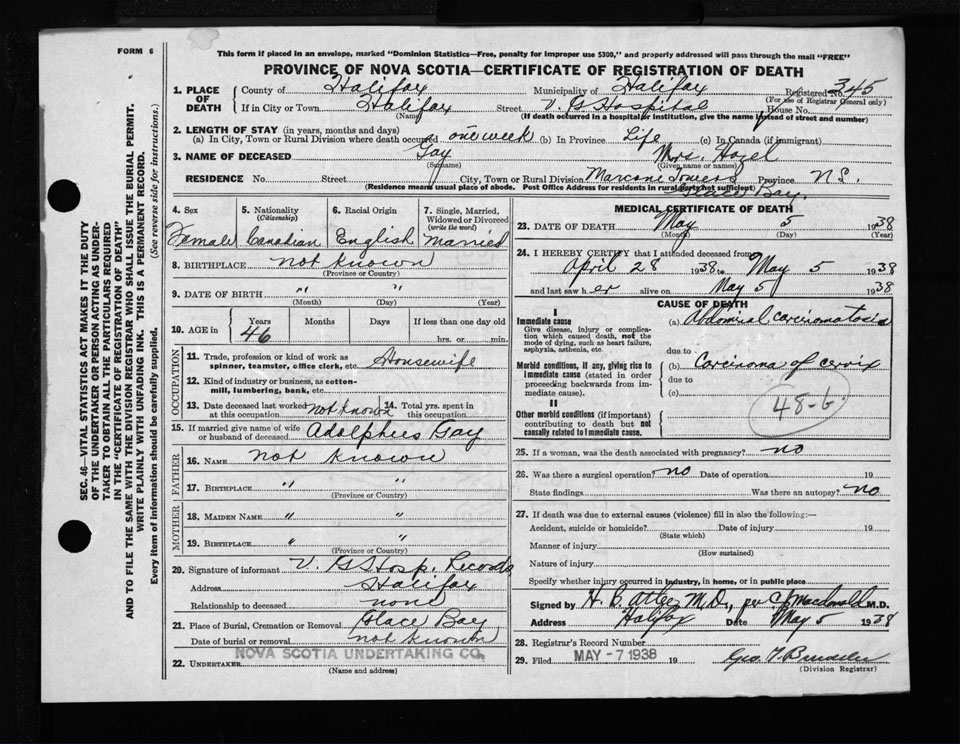 FORM 6
This form if placed in an envelope, marked "Dominion Statistics—Free, penalty for improper use $300," and properly addressed will pass through the mail "FREE"
PROVINCE OF NOVA SCOTIA—CERTIFICATE OF REGISTRATION OF DEATH
SEC. 46—VITAL STATISTICS ACT MAKES IT THE DUTY
OF THE UNDERTAKER OR PERSON ACTING AS UNDER-
TAKER TO OBTAIN ALL THE PARTICULARS REQUIRED
IN THE "CERTIFICATE OF REGISTRATION OF DEATH"
AND TO FILE THE SAME WITH THE DIVISION REGISTRAR WHO SHALL ISSUE THE BURIAL PERMIT.
WRITE PLAINLY WITH UNFADING INK. THIS IS A PERMANENT RECORD.
Every item of information should be carefully supplied. (See reverse side for instructions.)
1. PLACE OF DEATH
County of Halifax Municipality of Halifax Registered No. 345
(For use of Registrar General only)
If in City or Town Halifax Street V. G. Hospital House No.
(Name) (If death occurred in a hospital or institution, give the name instead of street and number)
2. LENGTH OF STAY (in years, months and days)
(a) In City, Town or Rural Division where death occured one week (b) In Province Life (c) In Canada (if immigrant)
3. NAME OF DECEASED Gay Mrs. Hazel
(Surname) (Given name or names)
RESIDENCE No. Street City, Town or Rural Division Marconi Towers Province N.S.
(Residence means usual place of abode. Post Office Address for residents in rural parts not sufficient) Glace Bay.
4. Sex Female
5. Nationality (Citizenship) Canadian
6. Racial Origin English
7. Single, Married, Widowed or Divorced (write the word) Married
8. BIRTHPLACE not known
(Province or Country)
9. DATE OF BIRTH " "
(Month) (Day) (Year)
10. AGE in Years Months Days If less than one day old
46 hrs. or min.
OCCUPATION
11. Trade, profession or kind of work as spinner, teamster, office clerk, etc. Housewife
12. Kind of industry or business, as cotton-mill, lumbering, bank, etc.
13. Date deceased last worked at this occupation not known 14. Total yrs. spent in this occupation
15. If married give name of wife or husband of deceased Adolphus Gay
FATHER
16. NAME not known
17. BIRTHPLACE " "
(Province or Country)
MOTHER
18. MAIDEN NAME " "
19. BIRTHPLACE " "
(Province or Country)
20. Signature of informant V. G. Hosp. Records
Address Halifax
Relationship to deceased none
21. Place of Burial, Cremation or Removal Glace Bay
Date of burial or removal not known
22. UNDERTAKER NOVA SCOTIA UNDERTAKING CO.
(Name and address)
MEDICAL CERTIFICATE OF DEATH
23. DATE OF DEATH May 5 1938
(Month) (Day) (Year)
24. I HEREBY CERTIFY that I attended deceased from
April 28 1938 to May 5 1938
and last saw h er alive on May 5 1938
CAUSE OF DEATH
I
Immediate cause (a) Abdominal carcinomatosis
Give disease, injury or complication which caused death, not the mode of dying, such as heart failure, asphyxia, asthenia, etc.
due to
Morbid conditions, if any, giving rise to immediate cause (stated in order proceeding backwards from immediate cause). (b) Carcinoma of cervix
due to
(c)
48-b.
II
Other morbid conditions (if important) contributing to death but not causally related to immediate cause.
25. If a woman, was the death associated with pregnancy? no
26. Was there a surgical operation? no Date of operation 19
State findings Was there an autopsy? no
27. If death was due to external causes (violence) fill in also the following:—
Accident, suicide or homicide? Date of injury 19
(State which)
Manner of injury
(How sustained)
Nature of injury
Specify whether injury occurred in industry, in home, or in public place
Signed by H. B. Atlee M.D., per C. Macdonald M.D.
Address Halifax Date May 5 1938
28. Registrar's Record Number
29. Filed MAY - 7 1938 19 Geo. T.
(Division Registrar)